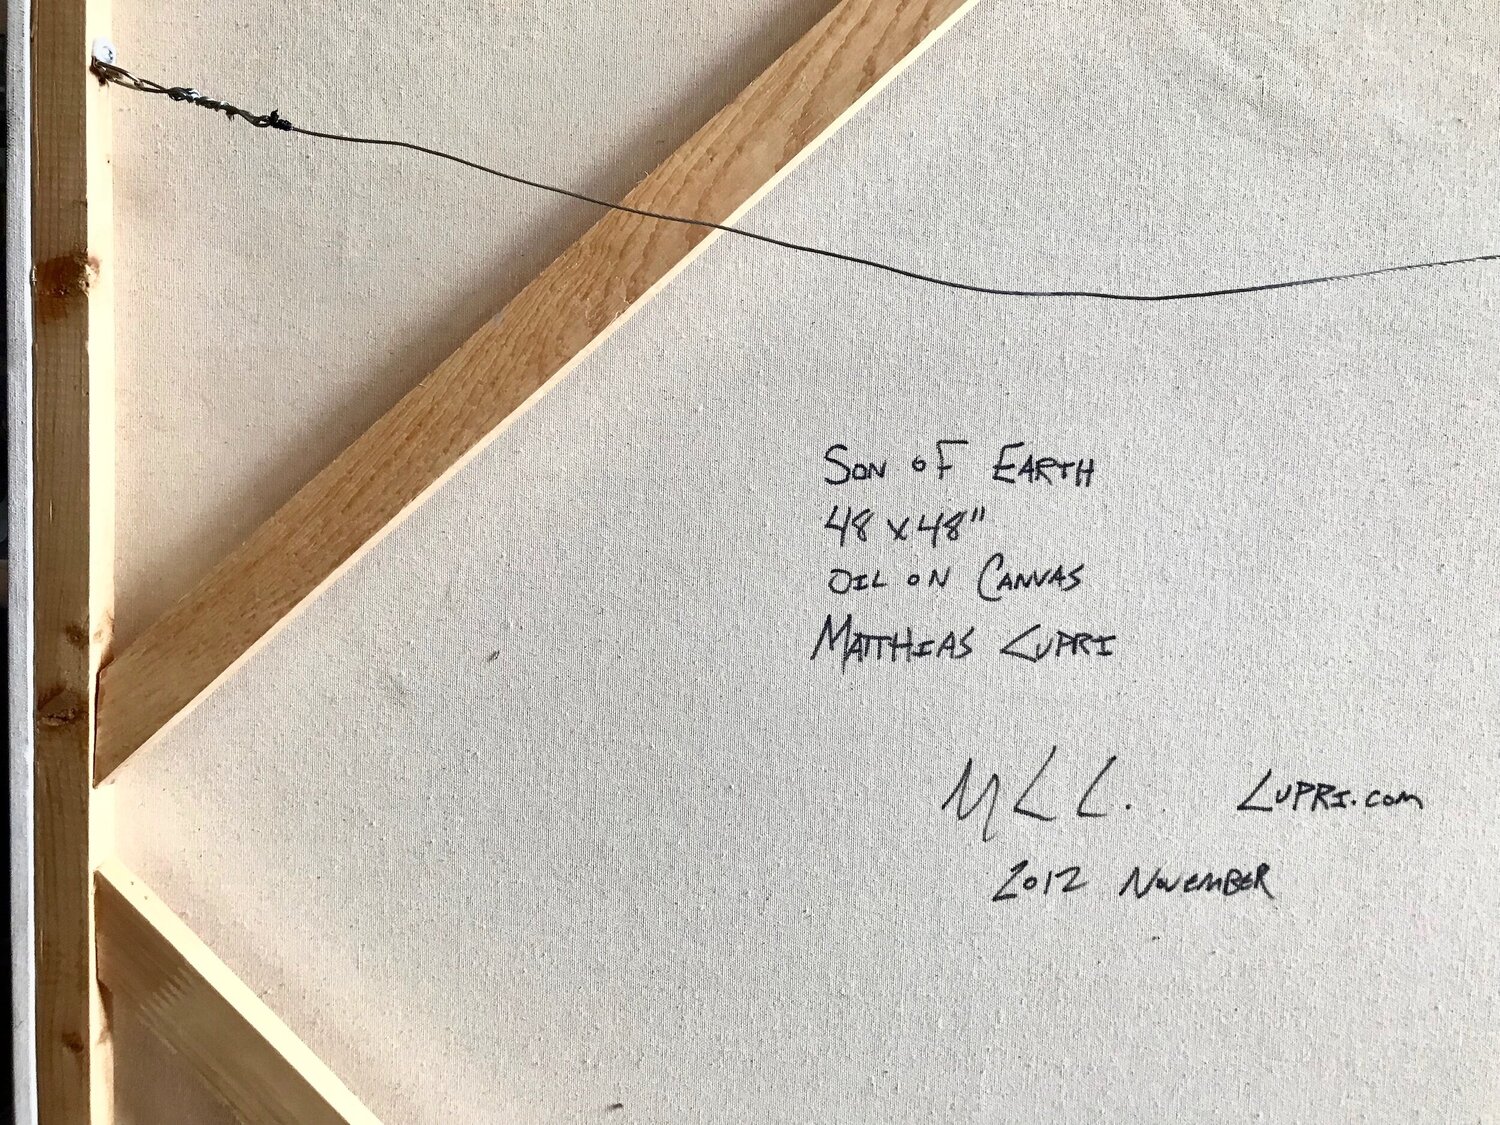 Son of Earth
48 x 48"
oil on Canvas
Matthias Lupri
MLL. Lupri.com
2012 November